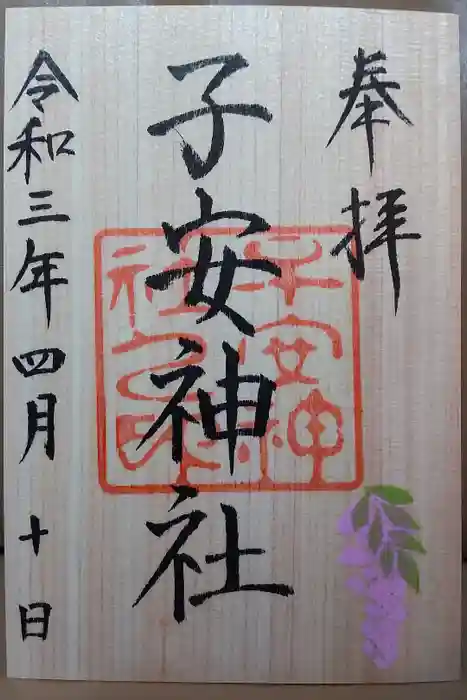 奉拝
子安神社
子安神
社之印
令和三年四月十日